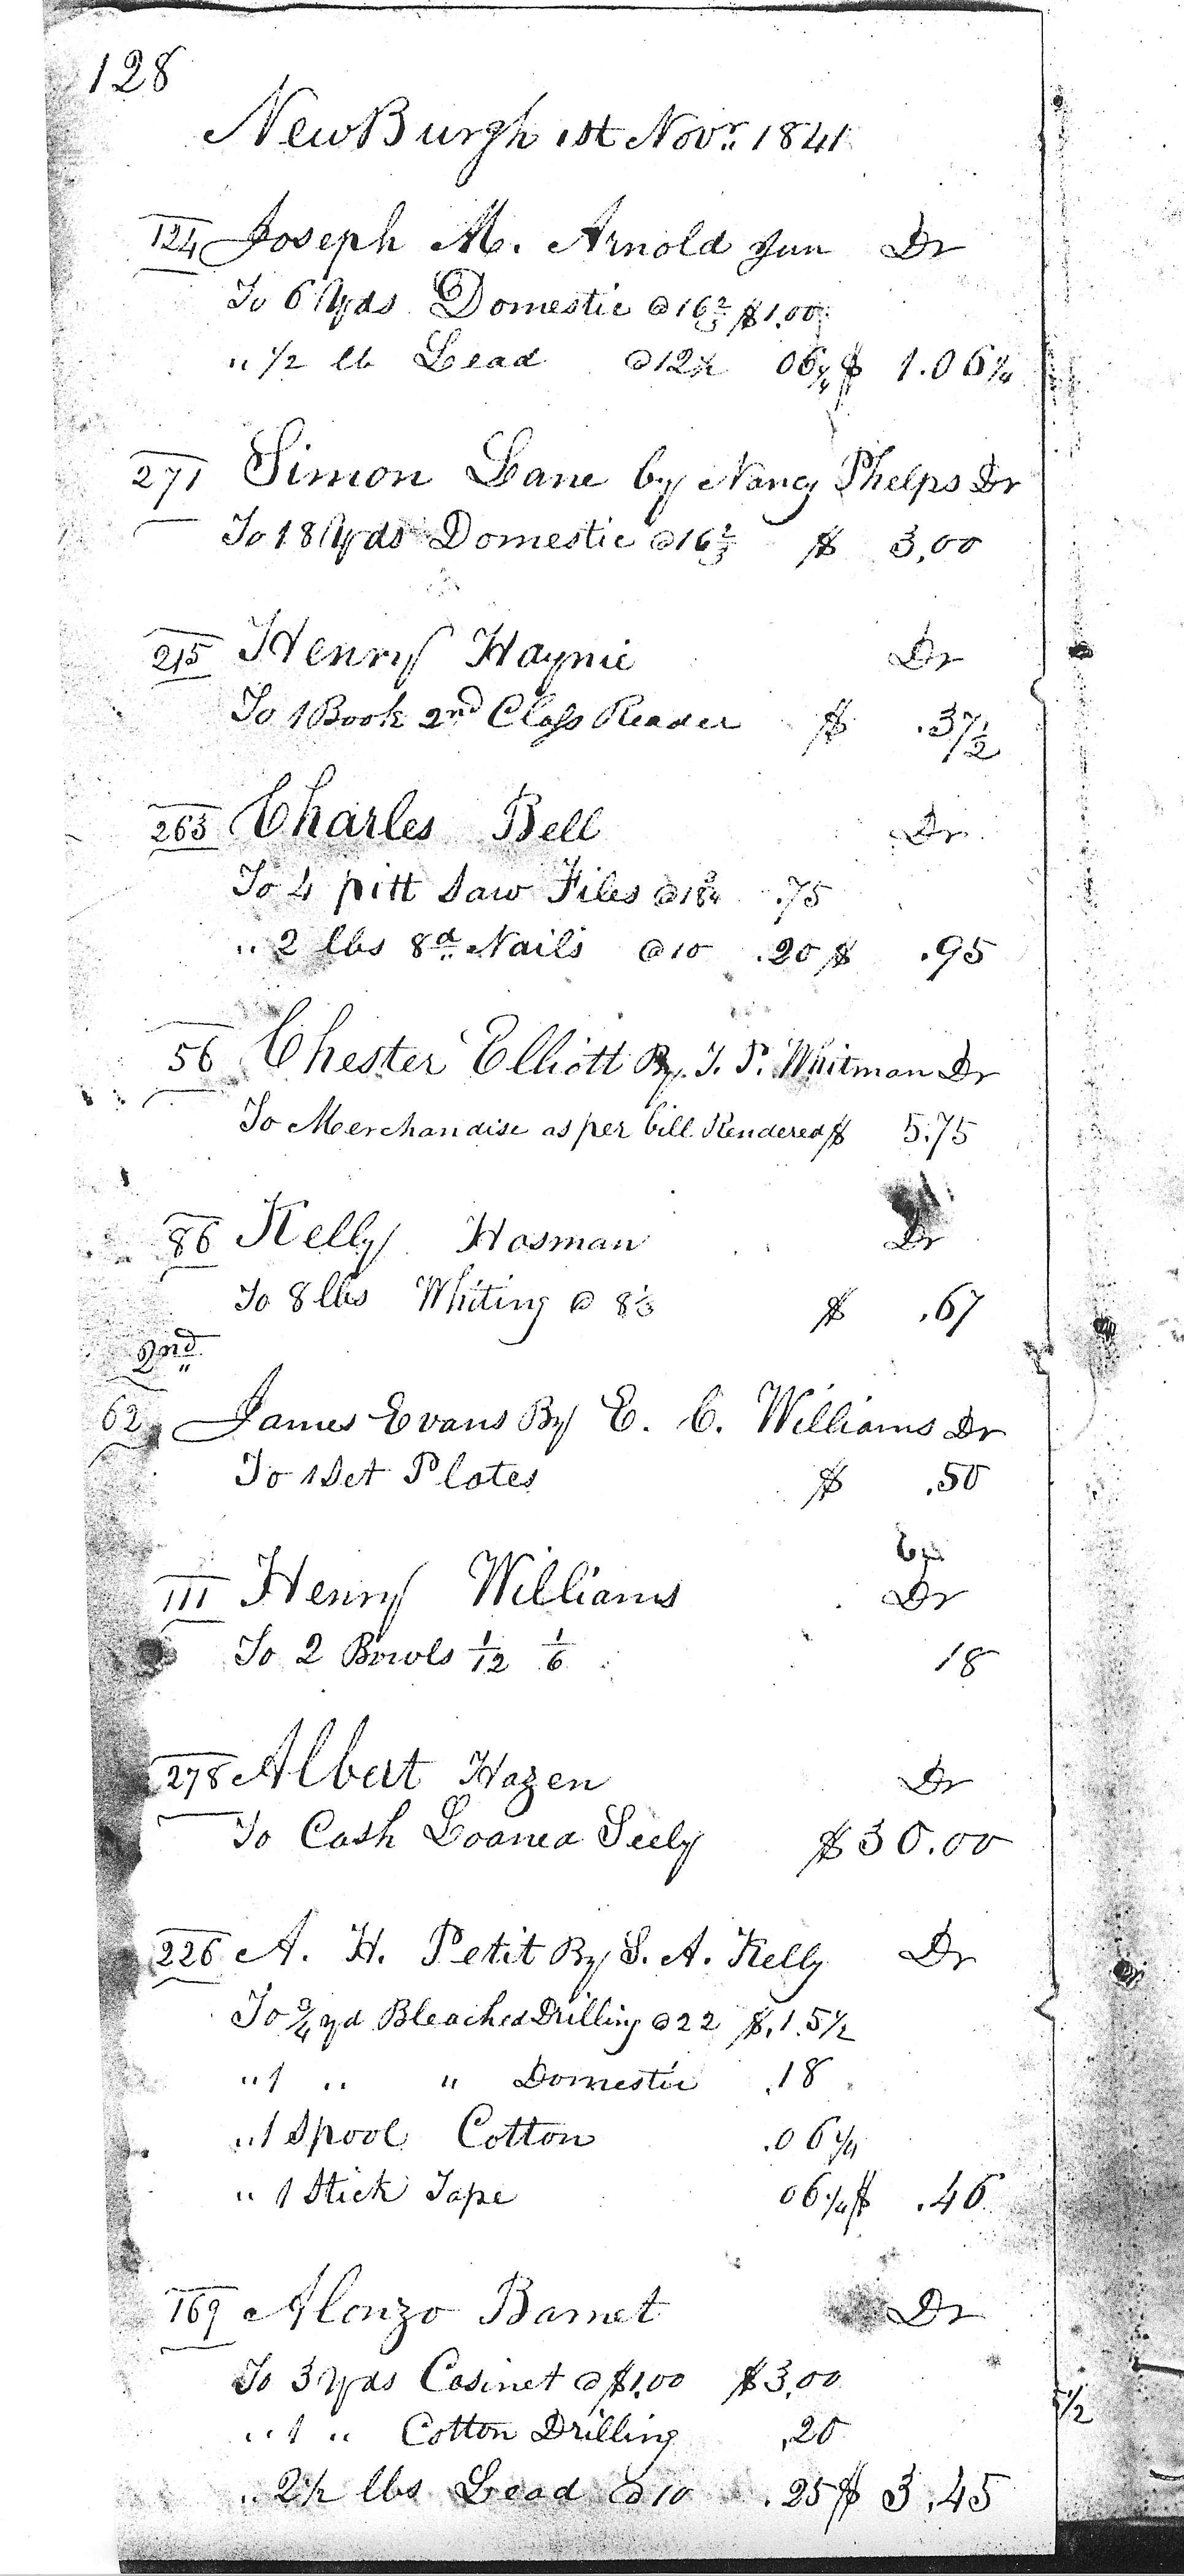 128
NewBurgh 1st Novr. 1841
124 Joseph M. Arnold Jun Dr
To 6 Yds Domestic @ 16 2/3 $1.00
" 1/2 lb Lead @ 12 1/2 06 1/4 $ 1.06 1/4
271 Simon Lane by Nancy Phelps Dr
To 18 Yds Domestic @ 16 2/3 $ 3.00
215 Henry Haynie Dr
To 1 Book 2nd Class Reader $ .37 1/2
263 Charles Bell Dr
To 4 pitt Saw Files @ 18 3/4 .75
" 2 lbs 8d Nails @ 10 .20 $ .95
56 Chester Elliott By. T. P. Whitman Dr
To Merchandise as per bill Rendered $ 5.75
86 Kelly Hosman Dr
To 8 lbs Whiting @ 8 1/3 $ .67
2nd
62 James Evans By E. C. Williams Dr
To 1 Set Plates $ .50
111 Henry Williams Dr
To 2 Bowls 1/12 1/6 18
278 Albert Hazen Dr
To Cash Loaned Seely $30.00
226 A. H. Petit By S. A. Kelly Dr
To 3/4 yd Bleached Drilling @ 22 $.15 1/2
" 1 " " Domestic .18
" 1 Spool Cotton .06 1/4
" 1 Stick Tape 06 1/4 $ .46
169 Alonzo Barnet Dr
To 3 Yds Casinet @ $1.00 $3.00
" 1 " Cotton Drilling .20
" 2 1/2 lbs Lead @ 10 .25 $ 3.45